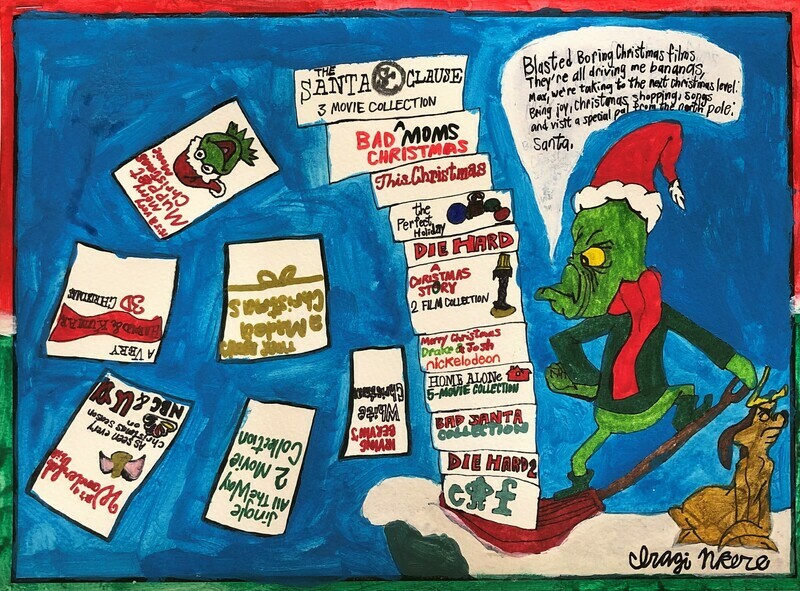 Blasted Boring Christmas films
They're all driving me bananas,
Max, we're taking to the next Christmas level.
Bring joy, christmas shopping, songs
and visit a special pal from the north pole:
Santa.
THE
SANTA CLAUSE
3 MOVIE COLLECTION
A
BAD MOMS
CHRISTMAS
This Christmas
the
Perfect
Holiday
DIE HARD
A
CHRISTMAS
STORY
2 FILM COLLECTION
Merry Christmas
Drake & Josh
nickelodeon
HOME ALONE
5-MOVIE COLLECTION
BAD SANTA
COLLECTION
DIE HARD 2
elf
It's a very merry
MUPPET
Christmas
A VERY
HAROLD & KUMAR
3D
CHRISTMAS
a Madea
Christmas
IRVING
BERLIN'S
White
Christmas
It's a
Wonderful
life
As seen every
christmas season
on
NBC & USA
Jingle
All The Way
2 Movie
Collection
Iragi Nkere